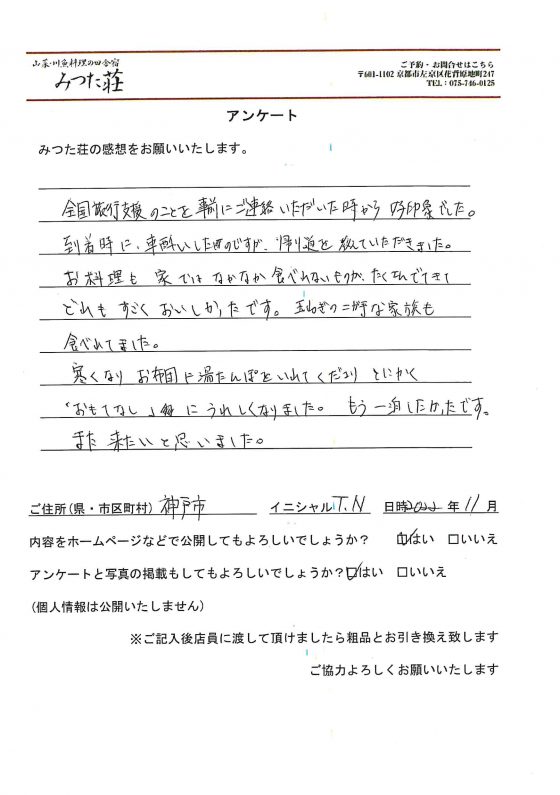 山菜・川魚料理の田舎宿
みつた荘
ご予約・お問合せはこちら
〒601-1102 京都市左京区花背原地町247
TEL: 075-746-0125
アンケート
みつた荘の感想をお願いいたします。
全国旅行支援のことを事前にご連絡いただいた時から 好印象でした。
到着時に、車酔いしたのですが、帰り道を教えていただきました。
お料理も 家では なかなか食べれないものが、たくさんでてきて
どれも すごく おいしかったです。玉ねぎの苦手な家族も
食べれてました。
寒くなり お布団に湯たんぽをいれてくださり とにかく
「おもてなし」 にうれしくなりました。 もう一泊したかったです。
また 来たいと思いました。
ご住所(県・市区町村) 神戸市 イニシャル T.N 日時 2022 年 11 月
内容をホームページなどで公開してもよろしいでしょうか? ☑はい □いいえ
アンケートと写真の掲載もしてもよろしいでしょうか?☑はい □いいえ
(個人情報は公開いたしません)
※ご記入後店員に渡して頂けましたら粗品とお引き換え致します
ご協力よろしくお願いいたします